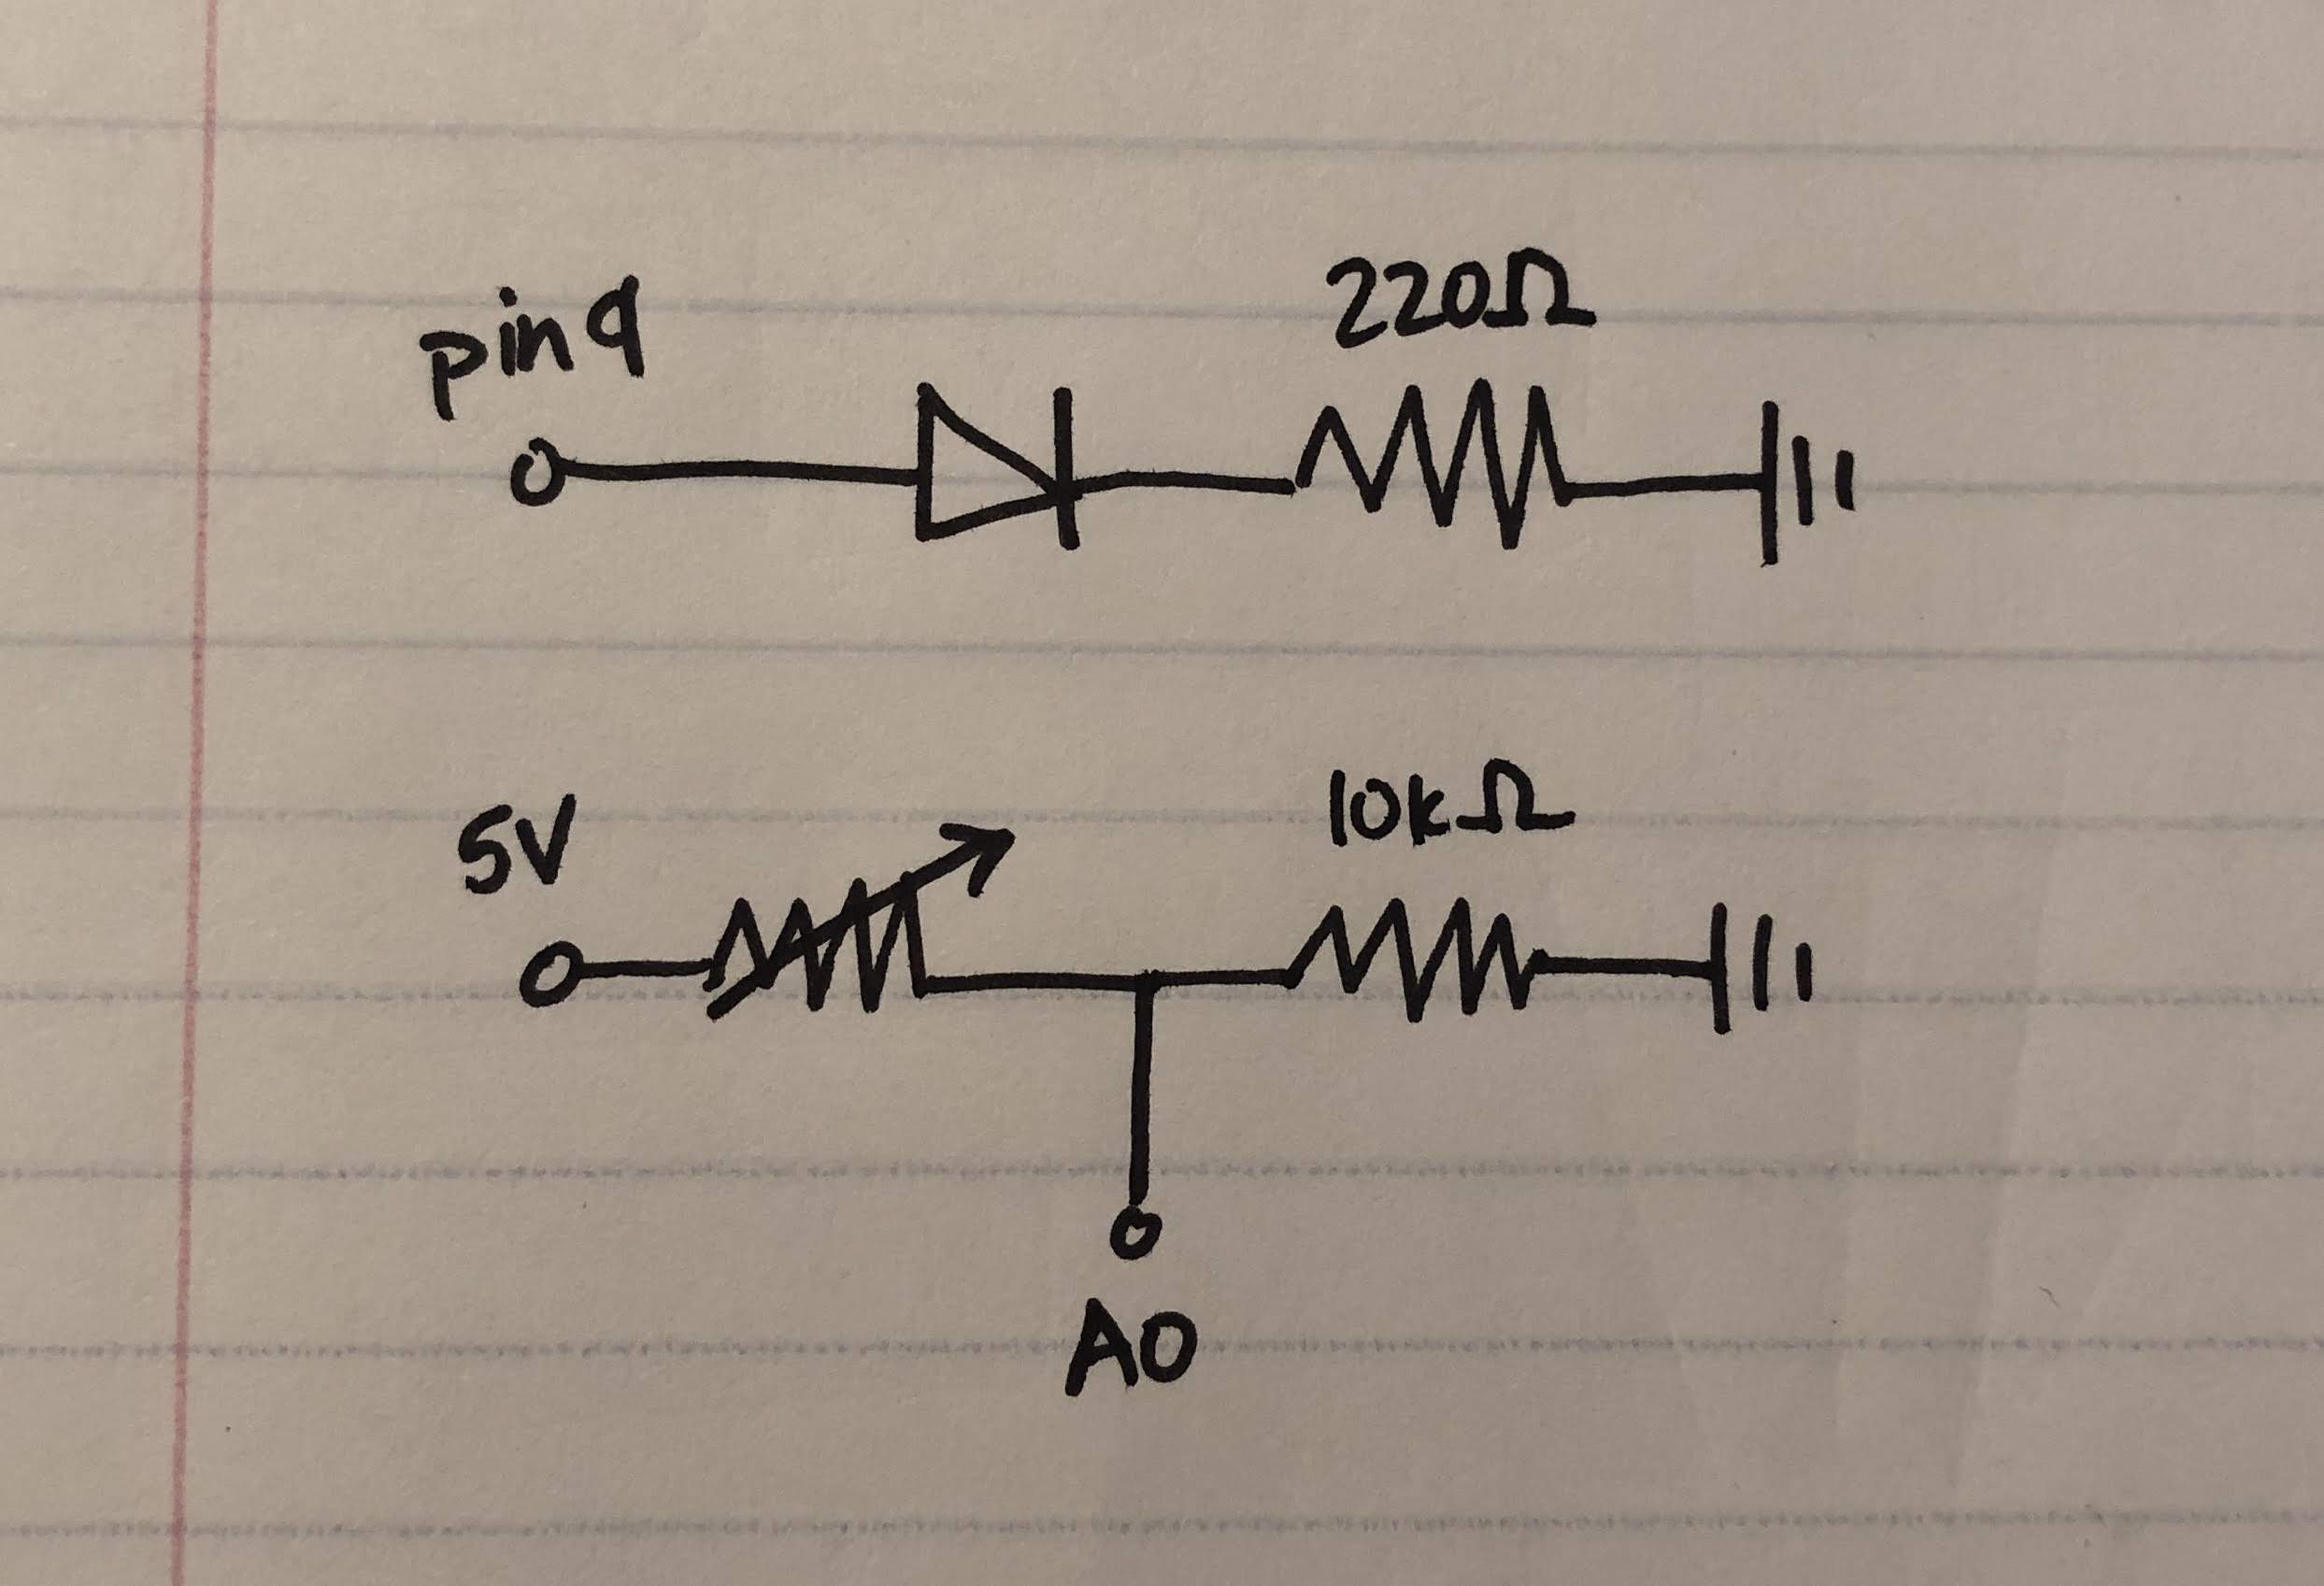 pin 9
220Ω
5V
10kΩ
A0